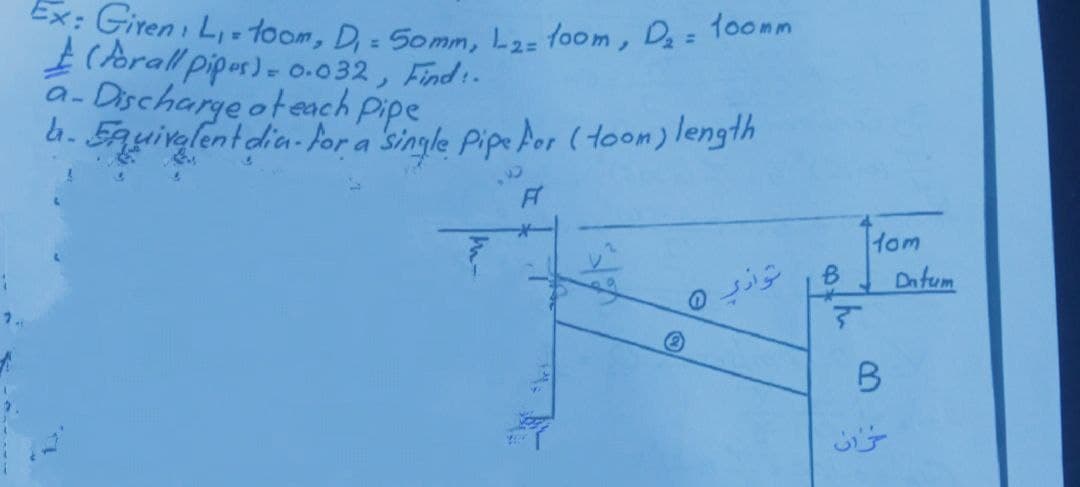 Ex: Given, L₁=100m, D₁=50mm, L₂=100m, D₂=100mm
f (for all pipes)=0.032, Find:-
a- Discharge at each pipe
b- Equivalent dia. for a single pipe for (100m) length
A
V²
2g
10m
B
Datum
① توازي
②
B
خزان